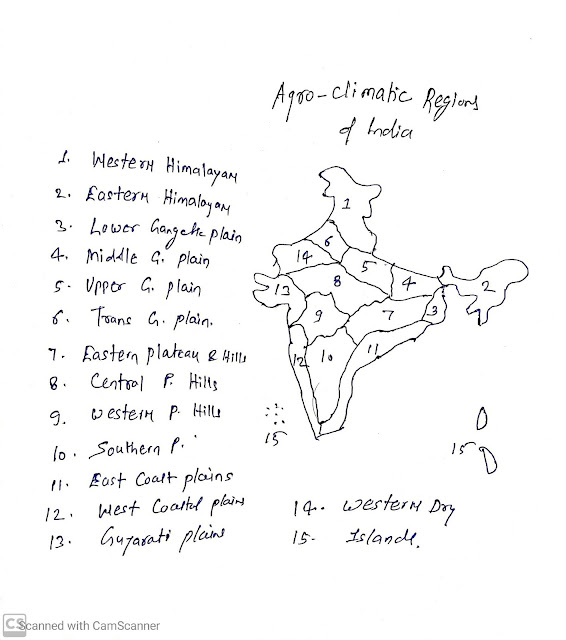 Agro-climatic Regions
of India
1. Western Himalayan
2. Eastern Himalayan
3. Lower Gangetic plain
4. Middle G. plain
5. Upper G. plain
6. Trans G. plain.
7. Eastern plateau & Hills
8. Central P. Hills
9. western P. Hills
10. Southern P.
11. East Coast plains
12. West Coastal plains
13. Gujarati plains
14. Western Dry
15. Islands.
1
6
14
5
8
4
2
13
9
7
3
12
10
11
15
15
CS Scanned with CamScanner